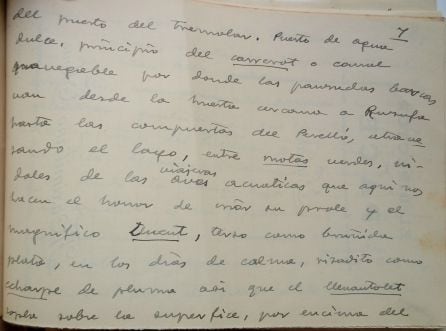 7
del puerto del Tremolar. Puerto de agua
dulce, principio del carrerot o canal
navegable por donde las panzudas barcas
van desde la huerta cercana a Ruzafa
hasta las compuertas del Perelló, atrave
sando el lago, entre motas verdes, ni-
dales de las viajeras aves acuaticas que aqui nos
hacen el honor de criar su prole y el
magnifico Lluent, terso como bruñida
plata, en los dias de calma, rizadito como
de pluma asi que el llevantolet
sopla sobre la superfice, por encima del